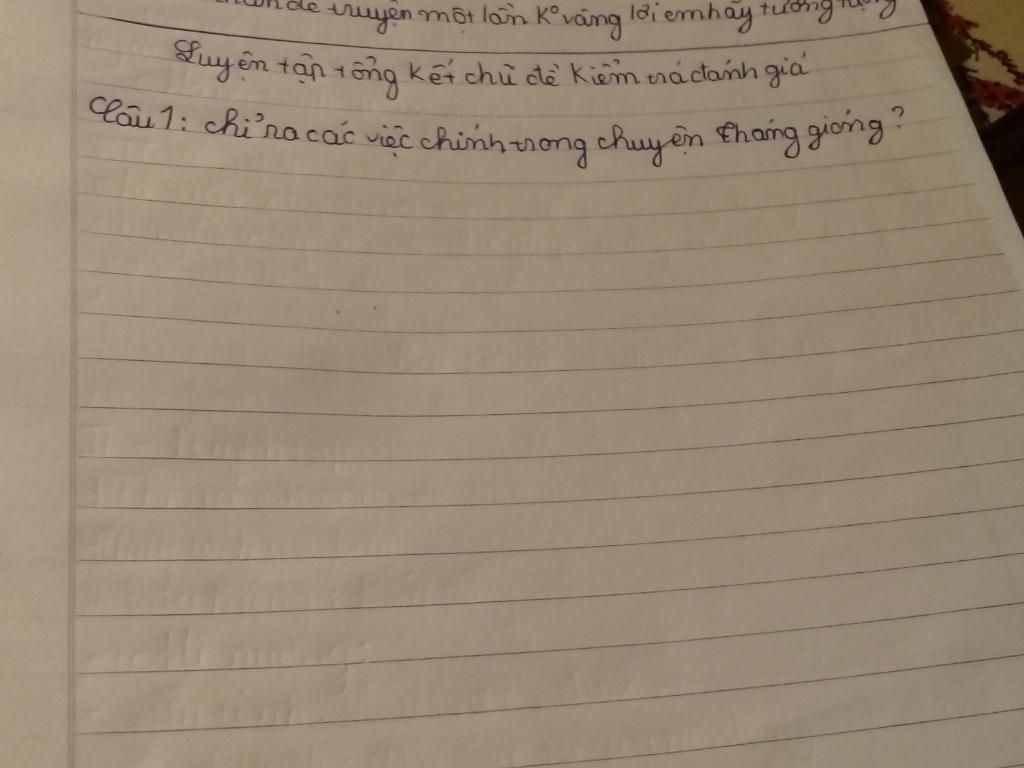 đề truyện một lần k° vâng lời em hãy tưởng tượng
Luyện tập tổng kết chủ đề kiểm trá đánh giá
Câu 1: chỉ ra các việc chính trong chuyện tháng gióng?